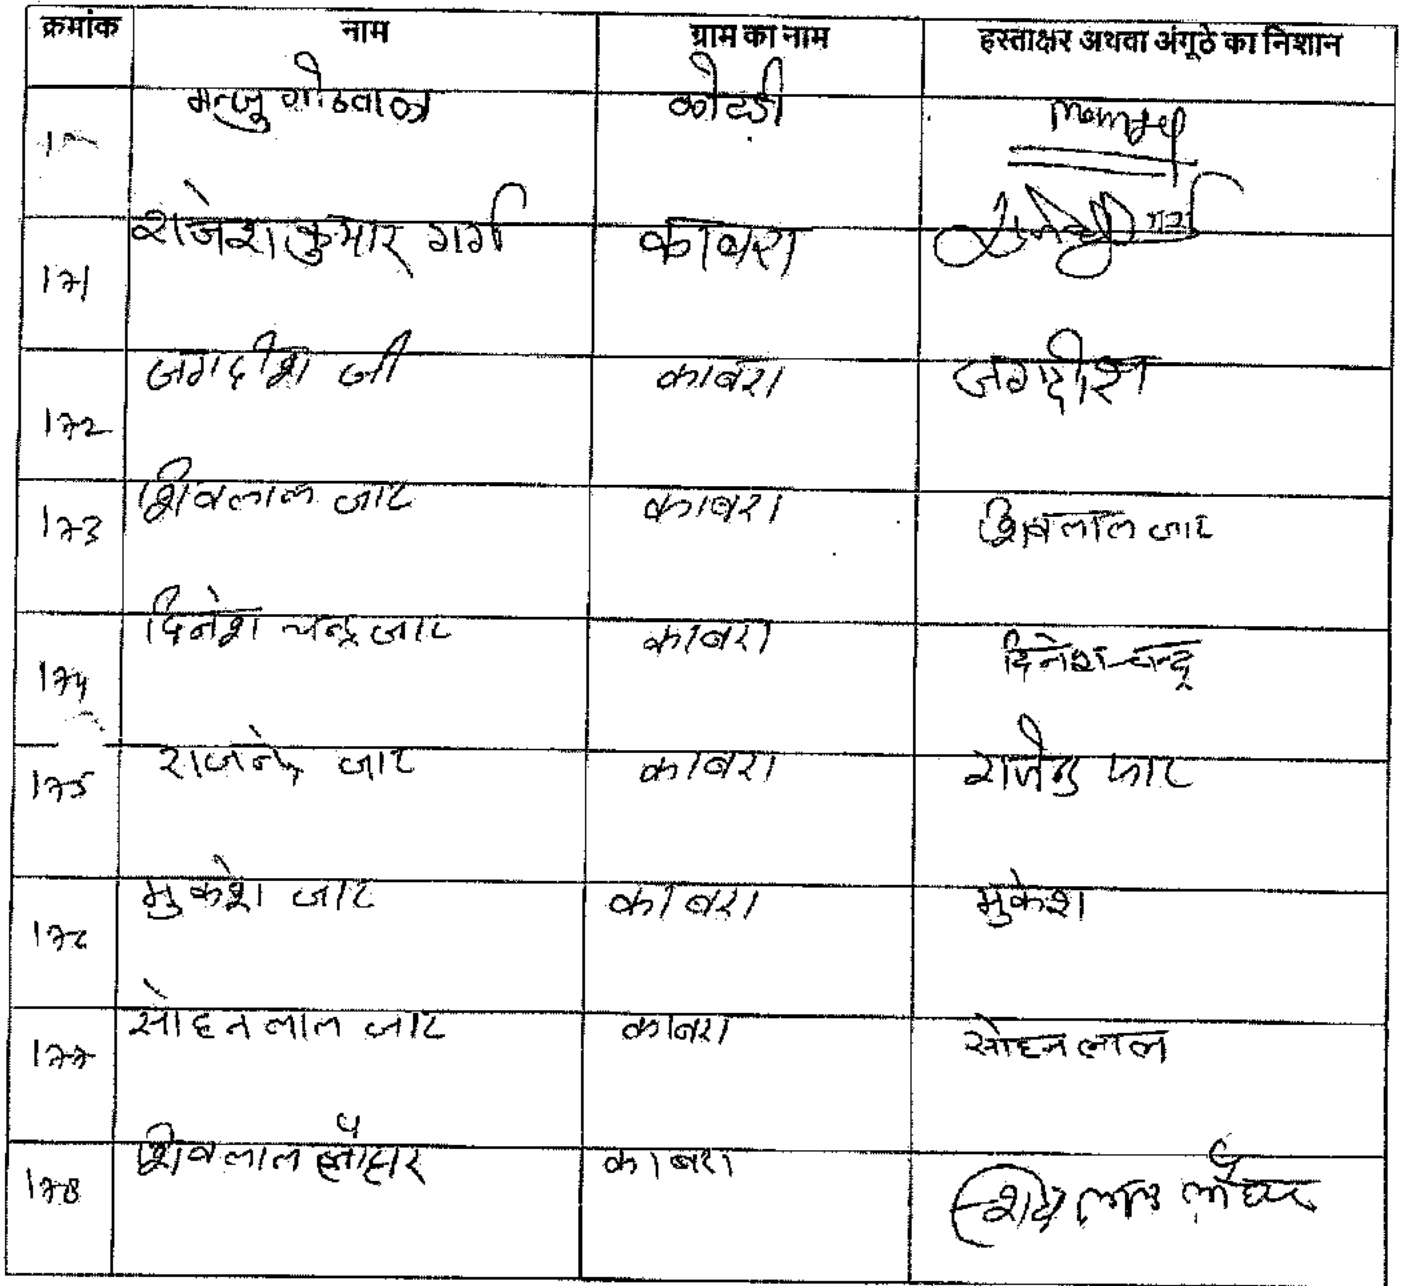 क्रमांक नाम ग्राम का नाम हस्ताक्षर अथवा अंगूठे का निशान
मन्जु गोठवाल कोटडी
171 राजेश कुमार गर्ग काबरा गर्ग
172 जगदीश जी काबरा जगदीश
173 शिवलाल जाट काबरा शिवलाल जाट
174 दिनेश चन्द्र जाट काबरा दिनेश चन्द्र
175 राजेन्द्र जाट काबरा राजेन्द्र जाट
176 मुकेश जाट काबरा मुकेश
177 सोहन लाल जाट काबरा सोहन लाल
178 शिवलाल लौहार काबरा शिव लाल लौहार